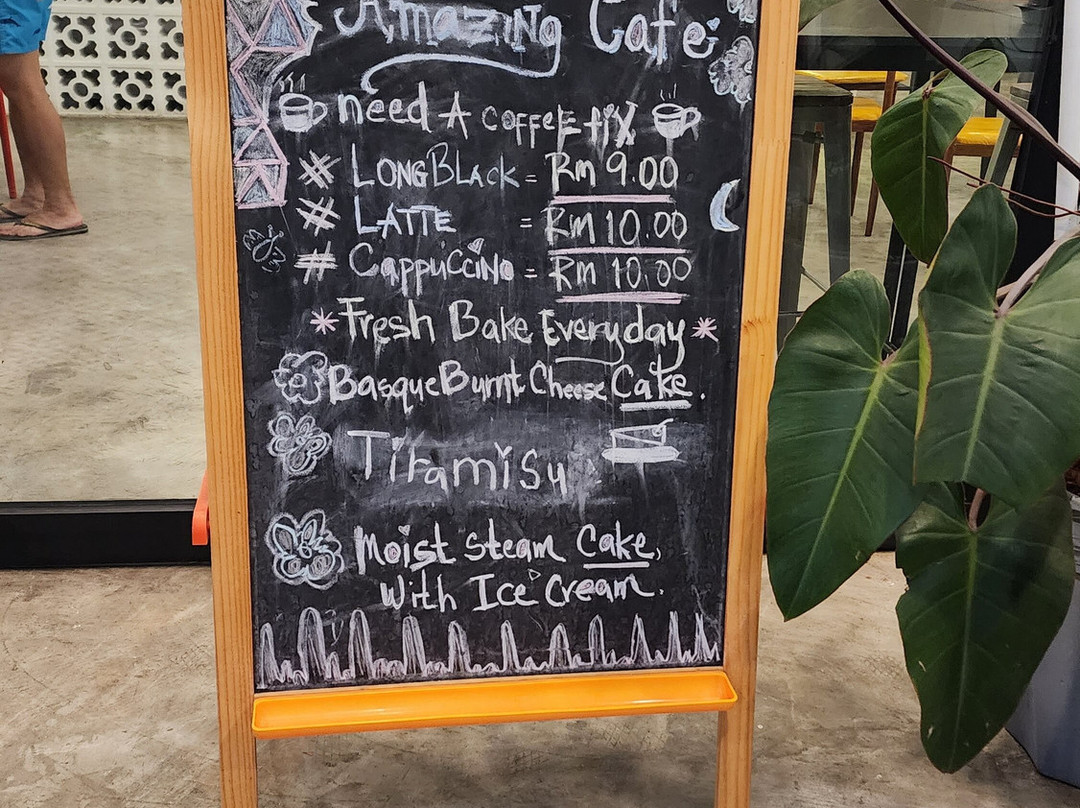 Amazing Cafe
need A coffee fix
# LONG BLACK = Rm 9.00
# LATTE = Rm 10.00
# Cappuccino = Rm 10.00
* Fresh Bake Everyday *
Basque Burnt Cheese Cake.
Tiramisu
Moist Steam Cake,
With Ice Cream.